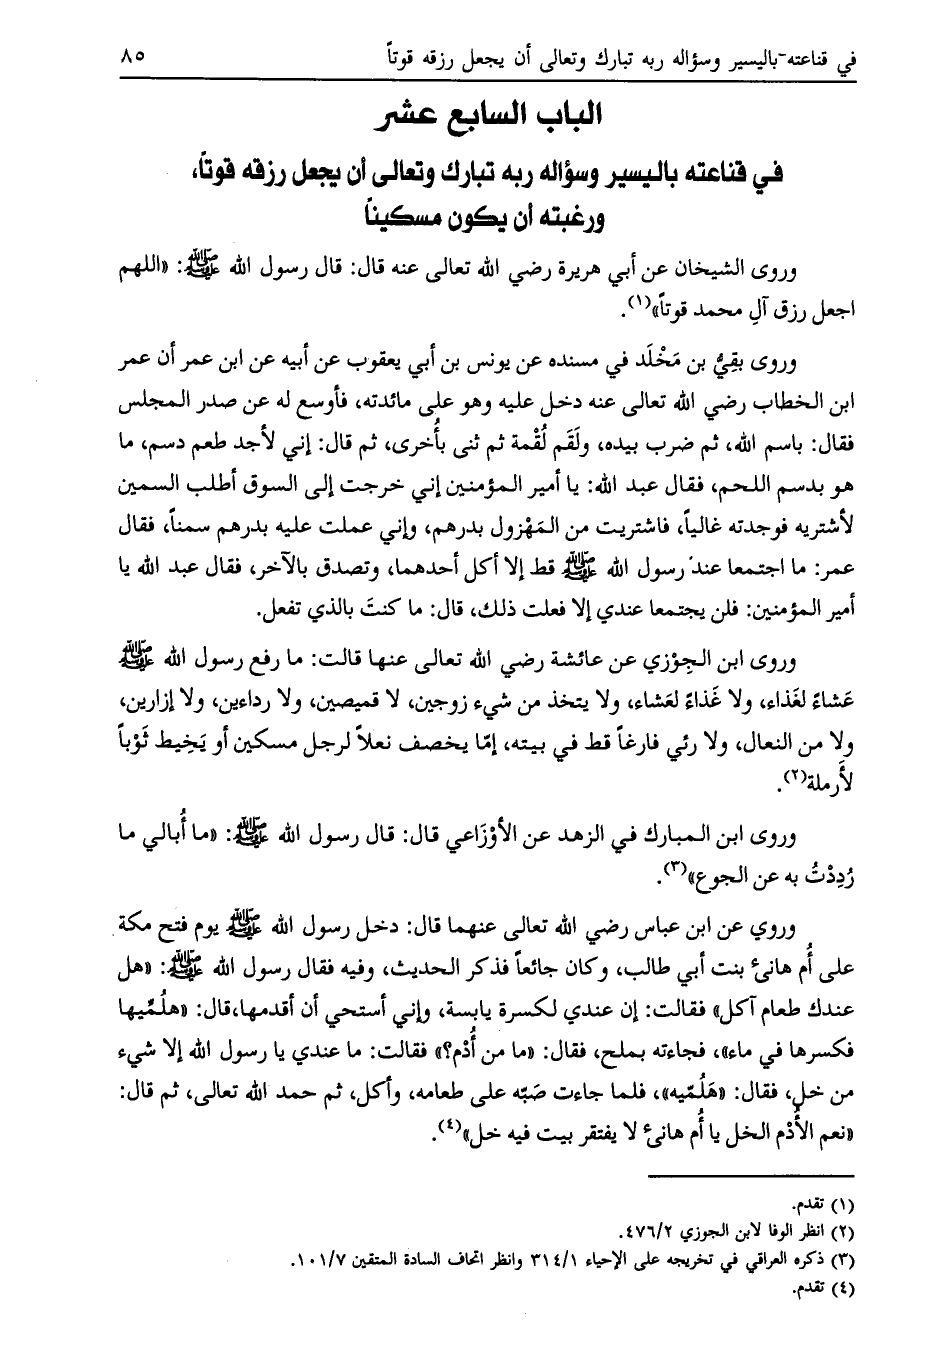 في قناعته باليسير وسؤاله ربه تبارك وتعالى أن يجعل رزقه قوتاً ٨٥
الباب السابع عشر
في قناعته باليسير وسؤاله ربه تبارك وتعالى أن يجعل رزقه قوتاً،
ورغبته أن يكون مسكيناً
وروى الشيخان عن أبي هريرة رضي الله تعالى عنه قال: قال رسول الله ﷺ: «اللهم
اجعل رزق آلِ محمد قوتاً»(١).
وروى بقِيُّ بن مَخْلَد في مسنده عن يونس بن أبي يعقوب عن أبيه عن ابن عمر أن عمر
ابن الخطاب رضي الله تعالى عنه دخل عليه وهو على مائدته، فأوسع له عن صدر المجلس
فقال: باسم الله، ثم ضرب بيده، ولَقَم لُقْمة ثم ثنى بأُخرى، ثم قال: إني لأجد طعم دسم، ما
هو بدسم اللحم، فقال عبد الله: يا أمير المؤمنين إني خرجت إلى السوق أطلب السمين
لأشتريه فوجدته غالياً، فاشتريت من المَهْزول بدرهم، وإني عملت عليه بدرهم سمناً، فقال
عمر: ما اجتمعا عند رسول الله ﷺ قط إلا أكل أحدهما، وتصدق بالآخر، فقال عبد الله يا
أمير المؤمنين: فلن يجتمعا عندي إلا فعلت ذلك، قال: ما كنتَ بالذي تفعل.
وروى ابن الجوْزي عن عائشة رضي الله تعالى عنها قالت: ما رفع رسول الله ﷺ
عَشاءً لغَذاء، ولا غَذاءً لعَشاء، ولا يتخذ من شيء زوجين، لا قميصين، ولا رداءين، ولا إزارين،
ولا من النعال، ولا رئي فارغاً قط في بيته، إمّا يخصف نعلاً لرجل مسكين أو يَخِيط ثَوْباً
لأَرملة(٢).
وروى ابن المبارك في الزهد عن الأوْزَاعي قال: قال رسول الله ﷺ: «ما أُبالي ما
رُدِدْتُ به عن الجوع»(٣).
وروي عن ابن عباس رضي الله تعالى عنهما قال: دخل رسول الله ﷺ يوم فتح مكة
على أُم هانئ بنت أبي طالب، وكان جائعاً فذكر الحديث، وفيه فقال رسول الله ﷺ: «هل
عندك طعام آكل» فقالت: إن عندي لكسرة يابسة، وإني أستحي أن أقدمها،قال: «هلُمِّيها
فكسرها في ماء»، فجاءته بملح، فقال: «ما من أُدْم؟» فقالت: ما عندي يا رسول الله إلا شيء
من خل، فقال: «هَلُمّيه»، فلما جاءت صَبّه على طعامه، وأكل، ثم حمد الله تعالى، ثم قال:
«نعم الأُدْم الخل يا أُم هانئ لا يفتقر بيت فيه خل»(٤).
(١) تقدم.
(٢) انظر الوفا لابن الجوزي ٤٧٦/٢.
(٣) ذكره العراقي في تخريجه على الإحياء ٣١٤/١ وانظر اتحاف السادة المتقين ١٠١/٧.
(٤) تقدم.